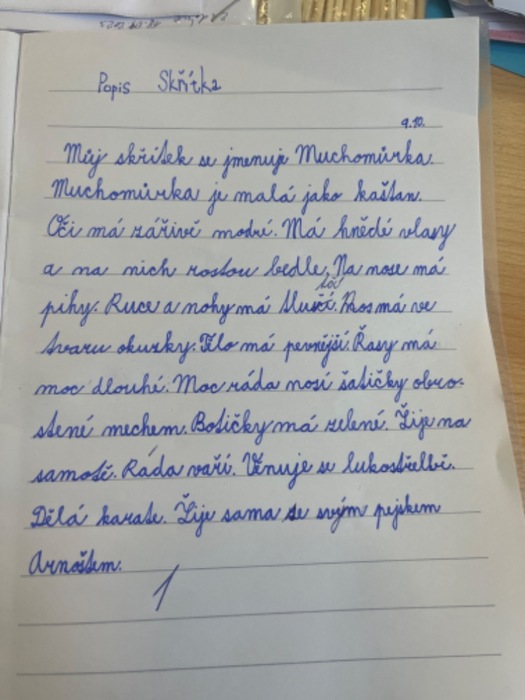 Popis Skřítka
9.10.
Můj skřítek se jmenuje Muchomůrka.
Muchomůrka je malá jako kaštan.
Oči má zářivě modré. Má hnědé vlasy
a na nich rostou bedle. Na nose má
pihy. Ruce a nohy má tlustší. Nos má ve
tvaru okurky. Tělo má pevnější. Řasy má
moc dlouhé. Moc ráda nosí šatičky obro-
stené mechem. Botičky má zelené. Žije na
samotě. Ráda vaří. Věnuje se lukostřelbě.
Dělá karate. Žije sama se svým pejskem
Arnoštem.
1